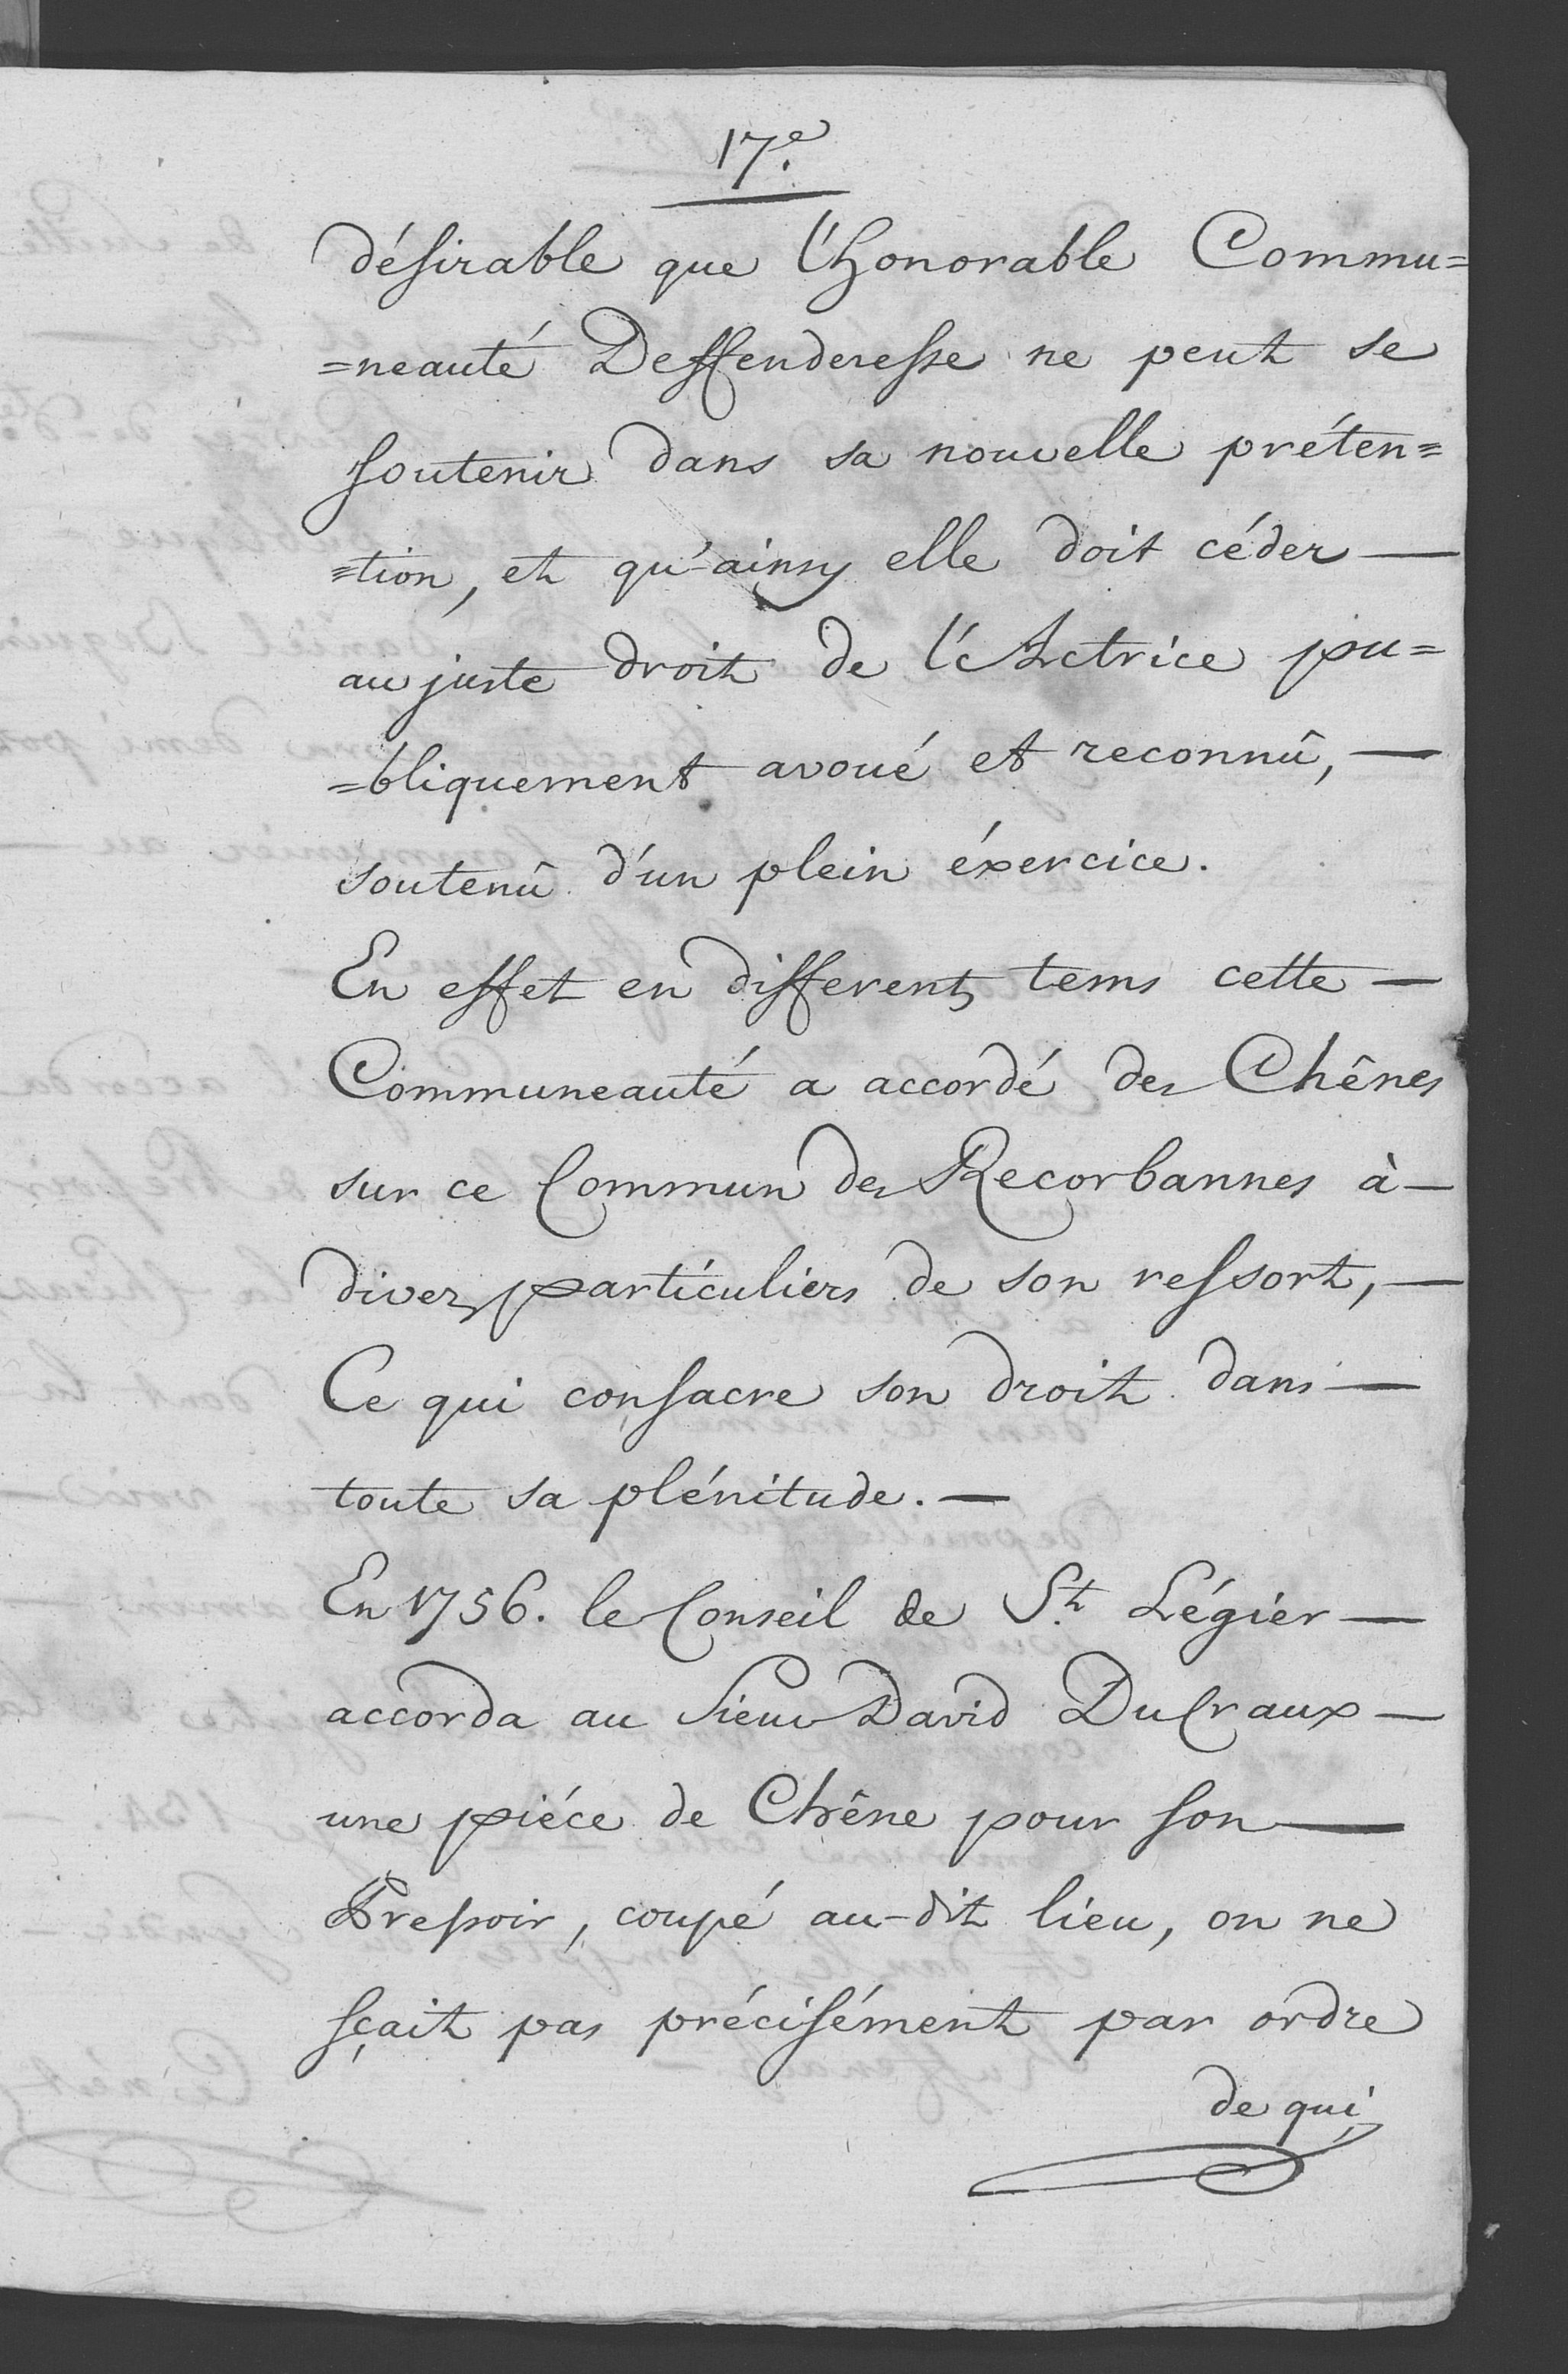 17.e
désirable que l'honorable Commu=
=neauté Deffenderesse ne peut se
soutenir dans sa nouvelle préten=
=tion, et qu'ainsy elle doit céder —
au juste droit de l'Actrice pu=
=bliquement avoué et reconnû, —
soutenû d'un plein éxercice.
En effet en differents tems cette —
Communeauté a accordé des Chênes
sur ce Commun des Recorbannes à —
divers particuliers de son ressort, —
Ce qui consacre son droit dans —
toute sa plénitude. —
En 1756. le Conseil de St. Légier —
accorda au Sieur David DuCraux —
une piéce de Chêne pour son —
Pressoir, coupé au-dit lieu, on ne
sçait pas précisément par ordre
de qui